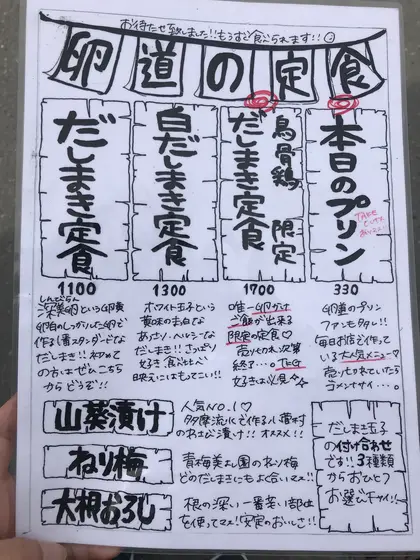 お待たせ致しました!!もうすぐ食べられます!!
卵道の定食
だしまき定食
1100
しんぴらん
深美卵という卵黄
卵白のしっかりした卵で
作る1番スタンダードな
だしまき!!初めて
の方はぜひこちら
からどうぞ!!
白だしまき定食
1300
ホワイト玉子という
黄味の真白な
あっさり・ヘルシーな
だしまき!!さっぱり
好き、食べたい人
映えにはもってこい!!
烏骨鶏 限定
だしまき定食
1700
唯一卵かけ
ご飯が出来る
限定の定食♡
売り切れ次第
終了…。TKG
好きは必見☆
本日のプリン
TAKE
OUTも
330
卵道のプリン
ファン続々!!
毎日お店で作って
いる大人気メニュー♡
売り切れていたら
ゴメンナサイ…。
山葵漬け
人気NO.1♡
多摩流水で作る小菅村
のわさび漬け!!オススメ!!
ねり梅
青梅美よし園のねり梅
どのだしまきにもよく合いマス!!
大根おろし
根の深い一番若い部位
を使ってマス!安定のおいしさ!!
だしまき玉子
の付け合わせ
です!!3種類
からおひとつ
お選び下サイ!!